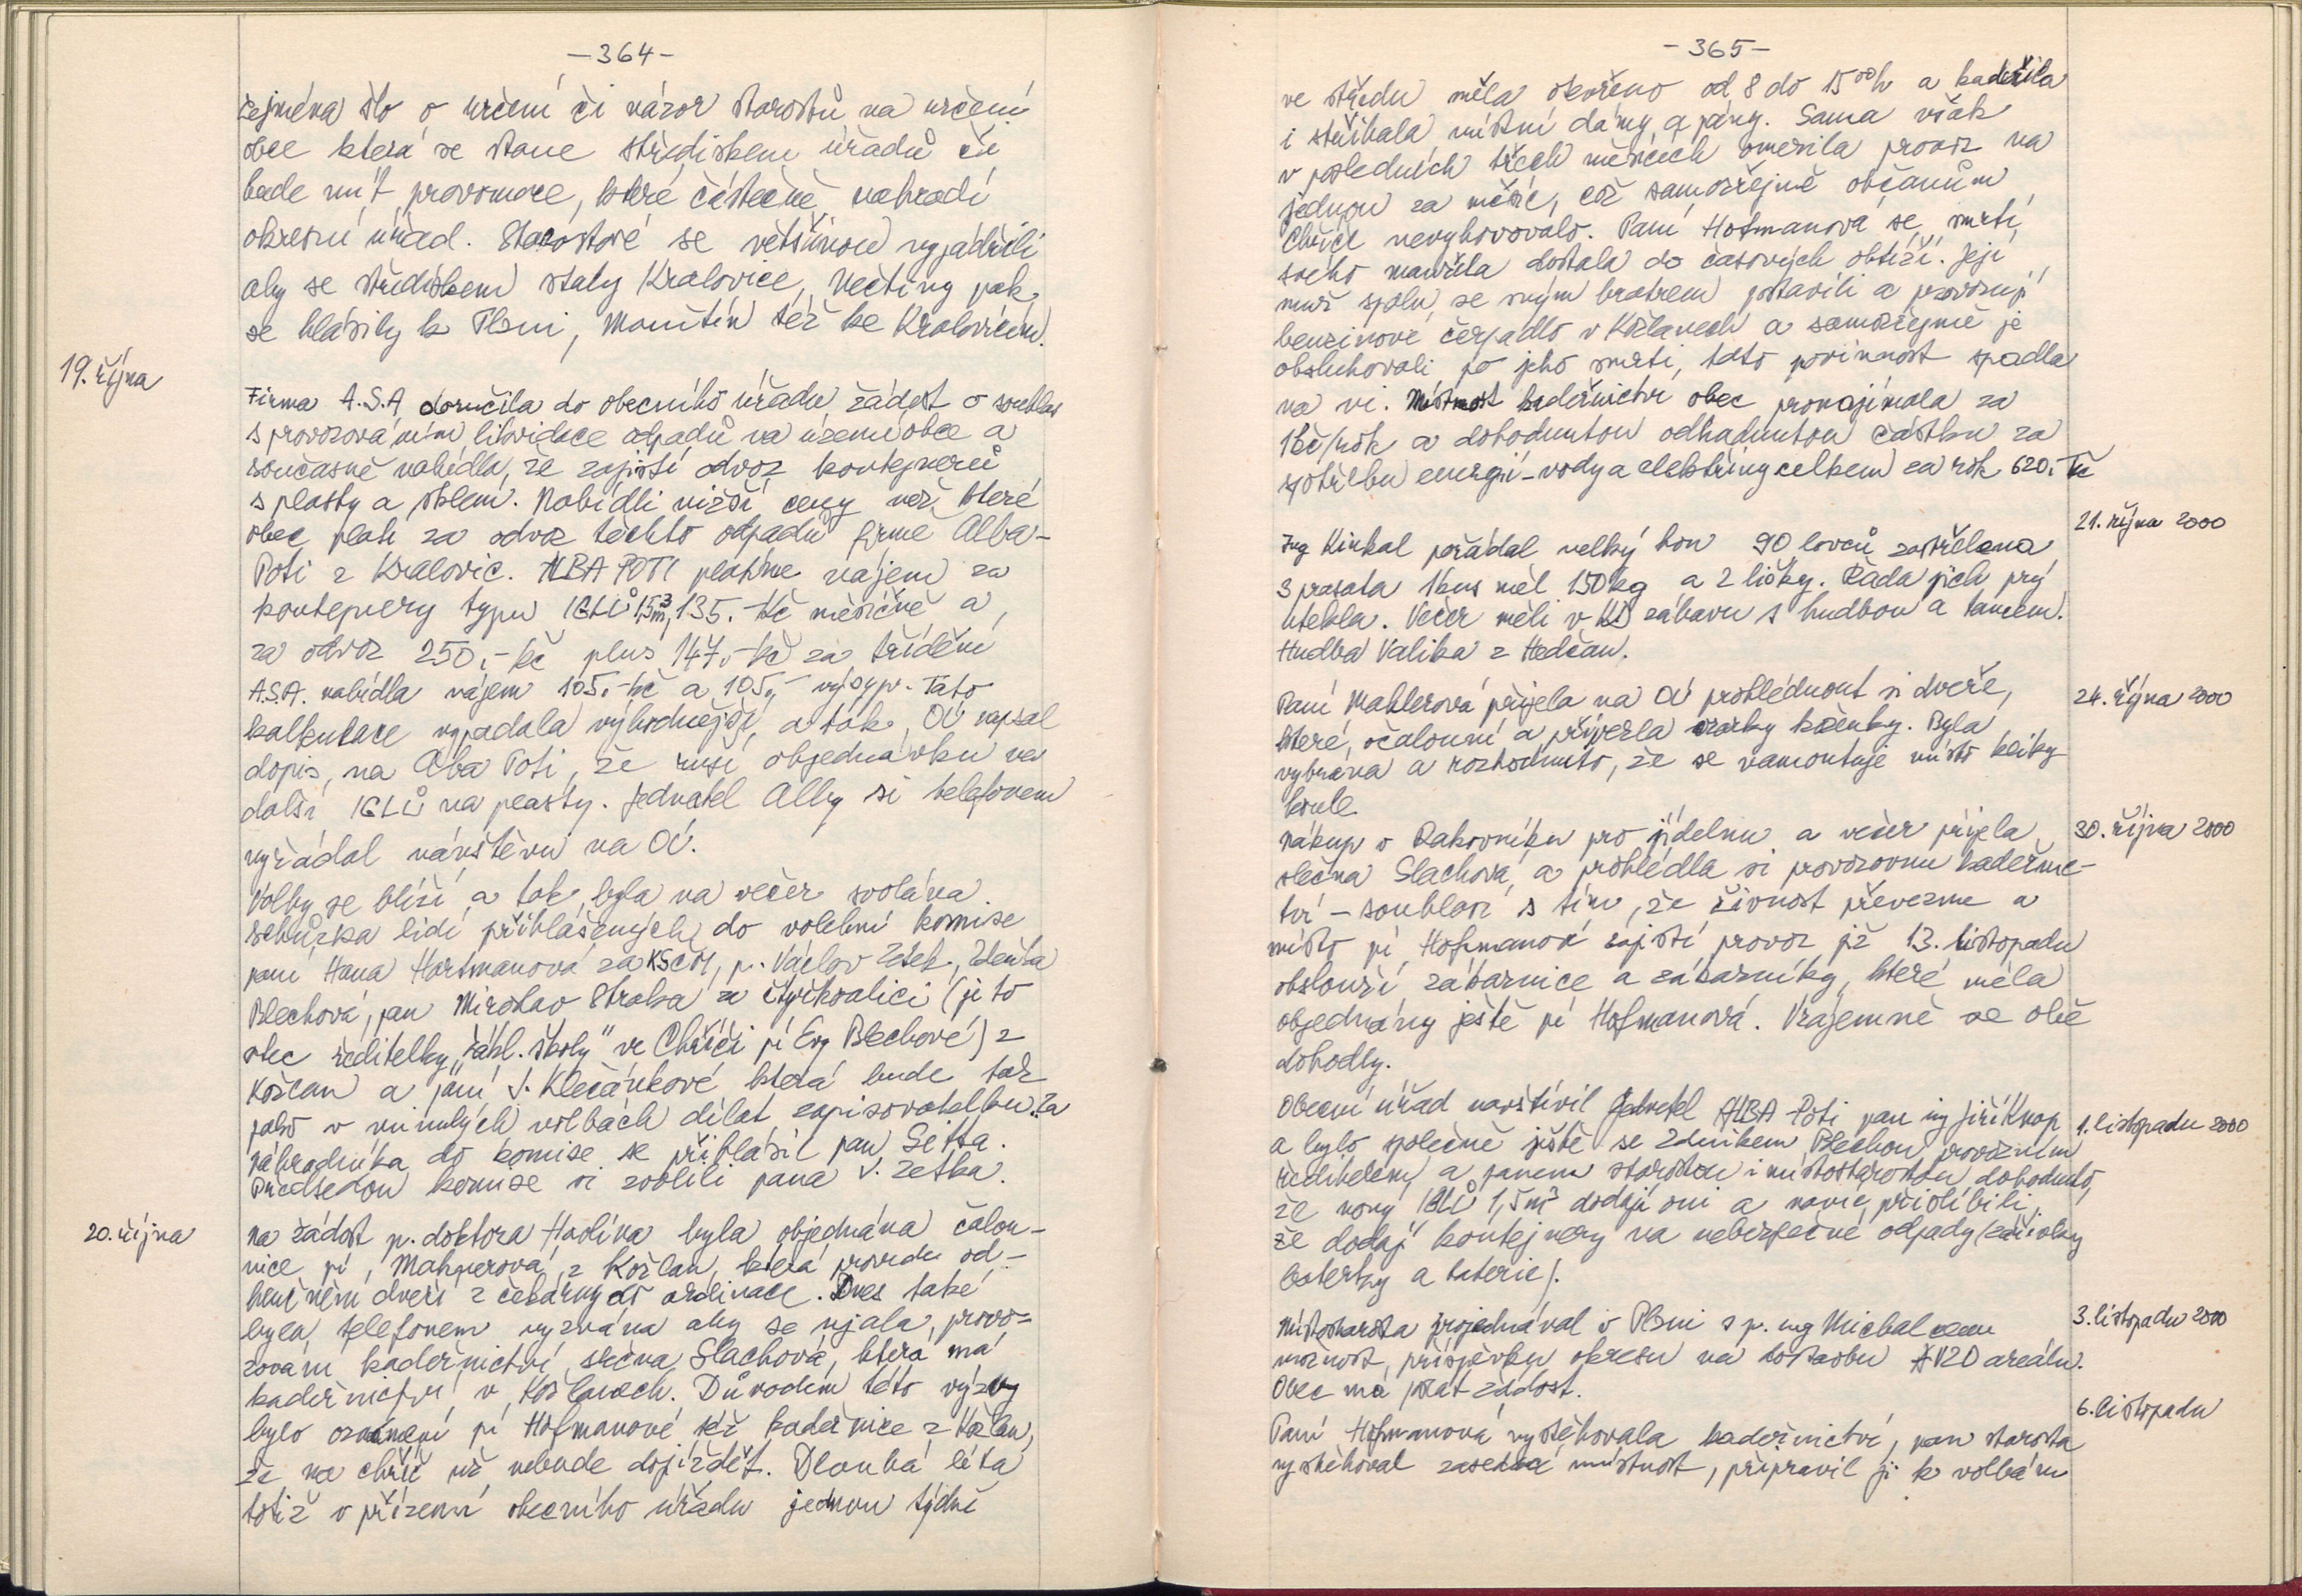 -364-
zejména šlo o určení či názor starostů na určení
obce která se stane střediskem úřadů či
bude mít pravomoce, které částečně nahradí
okresní úřad. Starostové se většinou vyjádřili
aby se střediskem staly Kralovice, Nečtiny pak
se hlásily k Plzni, Manětín též ke Kralovicům.
19. října
Firma A.S.A doručila do obecního úřadu žádost o souhlas
s provozováním likvidace odpadů na území obce a
současně nabídla, že zajistí odvoz kontejnerů
s plasty a sklem. Nabídli nižší ceny než které
obec platí za odvoz těchto odpadů firmě Alba-
Poti z Kralovic. ALBA POTI platíme nájem za
kontejnery typu IGLŮ 1,5m³, 135.- Kč měsíčně a
za odvoz 250,- Kč plus 147,- Kč za třídění
A.S.A. nabídla nájem 105.- Kč a 105,- výsyp. Tato
kalkulace vypadala výhodnější, a tak OÚ napsal
dopis, na Alba Poti, že ruší objednávku na
další IGLŮ na plasty. Jednatel Alby si telefonem
vyžádal návštěvu na OÚ.
Volby se blíží a tak byla na večer svolána
schůzka lidí přihlášených do volební komise
paní Hana Hartmanová za KSČM, p. Václav Zetek, Zdeňka
Blechová, pan Miroslav Straka za čtyřkoalici (je to
otec ředitelky „zákl. školy" ve Chříči pí Evy Blechové) z
Kožlan a paní J. Klečánkové která bude tak
jako v minulých volbách dělat zapisovatelku. Za
náhradníka do komise se přihlásil pan Seitta.
Předsedou komise si zvolili pana V. Zetka.
20. října
Na žádost p. doktora Havlína byla objednána čalou-
nice pí, Mahlerová z Kožlan, která provede od-
hlučnění dveří z čekárny do ordinace. Dnes také
byla telefonem vyzvána aby se ujala, provo-
zování kadeřnictví slečna Slachová, která má
kadeřnictví v Kožlanech. Důvodem této výzvy
bylo oznámení pí Hofmanové též kadeřnice z Kožlan,
že na Chříč už nebude dojíždět. Dlouhá léta
totiž v přízemí obecního úřadu jednou týdně
-365-
ve středu měla otevřeno od 8 do 15⁰⁰h a kadeřila
i stříhala místní dámy a pány. Sama však
v posledních třech měsících omezila provoz na
jednou za měsíc, což samozřejmě občanům
Chříče nevyhovovalo. Paní Hofmanová se smrtí
svého manžela dostala do časových obtíží. Její
muž spolu se svým bratrem postavili a provozují
benzinové čerpadlo v Kožlanech a samozřejmě je
obsluhovali po jeho smrti, tato povinnost spadla
na ni. Místnost kadeřnictví obec pronajímala za
1Kč/rok a dohodnutou odhadnutou částku za
spotřebu energií-vody a elektřiny celkem za rok 620.- Kč
21. října 2000
Ing Kinkal pořádal velký hon 90 lovců zastřelena
3 prasata 1kus měl 150kg a 2 lišky. Řada jich prý
utekla. Večer měli v KD zábavu s hudbou a tancem.
Hudba Valika z Hedčan.
24. října 2000
Paní Mahlerová přijela na OÚ prohlédnout si dveře,
které, očalouní a přivezla vzorky koženky. Byla
vybrána a rozhodnuto, že se namontuje místo kliky
koule.
30. října 2000
Nákup v Rakovníku pro jídelnu a večer přijela
slečna Slachová, a prohlédla si provozovnu kadeřnic-
tví - souhlasí s tím, že živnost převezme a
místo pí Hofmanové zajistí provoz již 13. listopadu
obslouží zákaznice a zákazníky, které měla
objednány ještě pí Hofmanová. Vzájemně se obě
dohodly.
1. listopadu 2000
Obecní úřad navštívil jednatel ALBA Poti pan ing Jiří Knap
a bylo společně ještě se Zdeňkem Blechou provozním
ředitelem a panem starostou i místostarostou dohodnuto,
že nový IGLŮ 1,5m³ dodají oni a navíc přislíbili,
že dodají kontejnery na nebezpečné odpady (zářivky
baterky a baterie).
3. listopadu 2000
Místostarosta projednával v Plzni s p. ing Michalcem
možnost, příspěvku okresu na dostavbu AVZO areálu.
Obec má psát žádost.
6. listopadu
Paní Hofmanová vystěhovala kadeřnictví, pan starosta
vystěhoval zasedací místnost, připravil ji k volbám